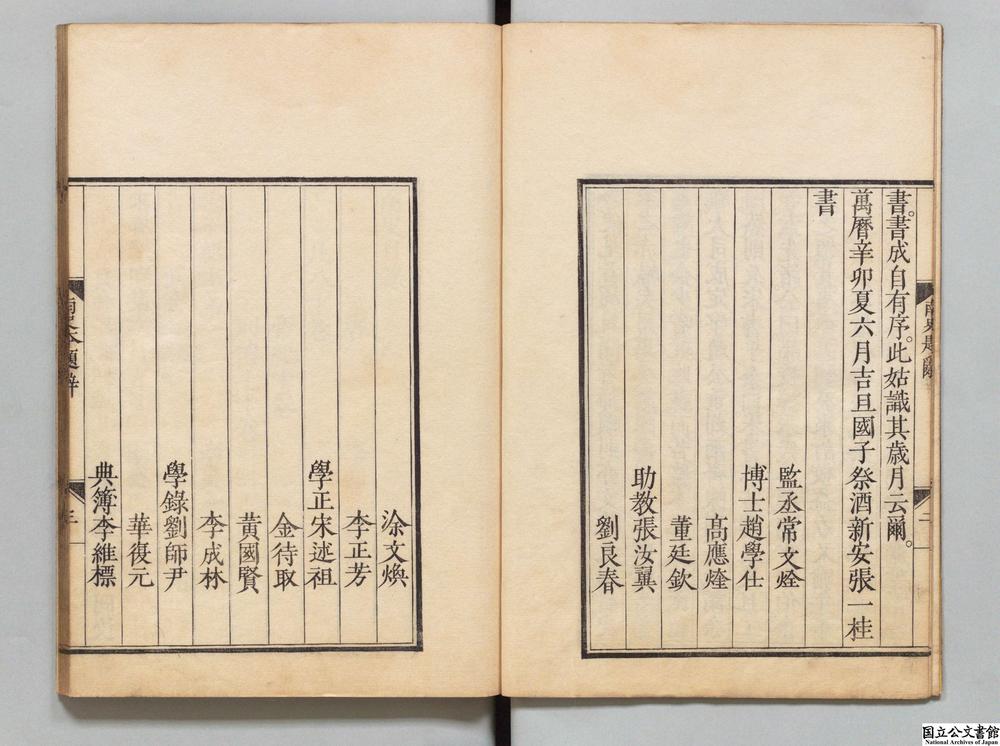 書。書成自有序。此姑識其歳月云爾。
萬曆辛卯夏六月吉旦國子祭酒新安張一桂
書
監丞常文烇
博士趙學仕
髙應㷮
董廷欽
助教張汝翼
劉良春
二
涂文煥
李正芳
學正宋述祖
金待取
黄國賢
李成林
學錄劉師尹
華復元
典簿李維標
題辭
三
国立公文書館
National Archives of Japan